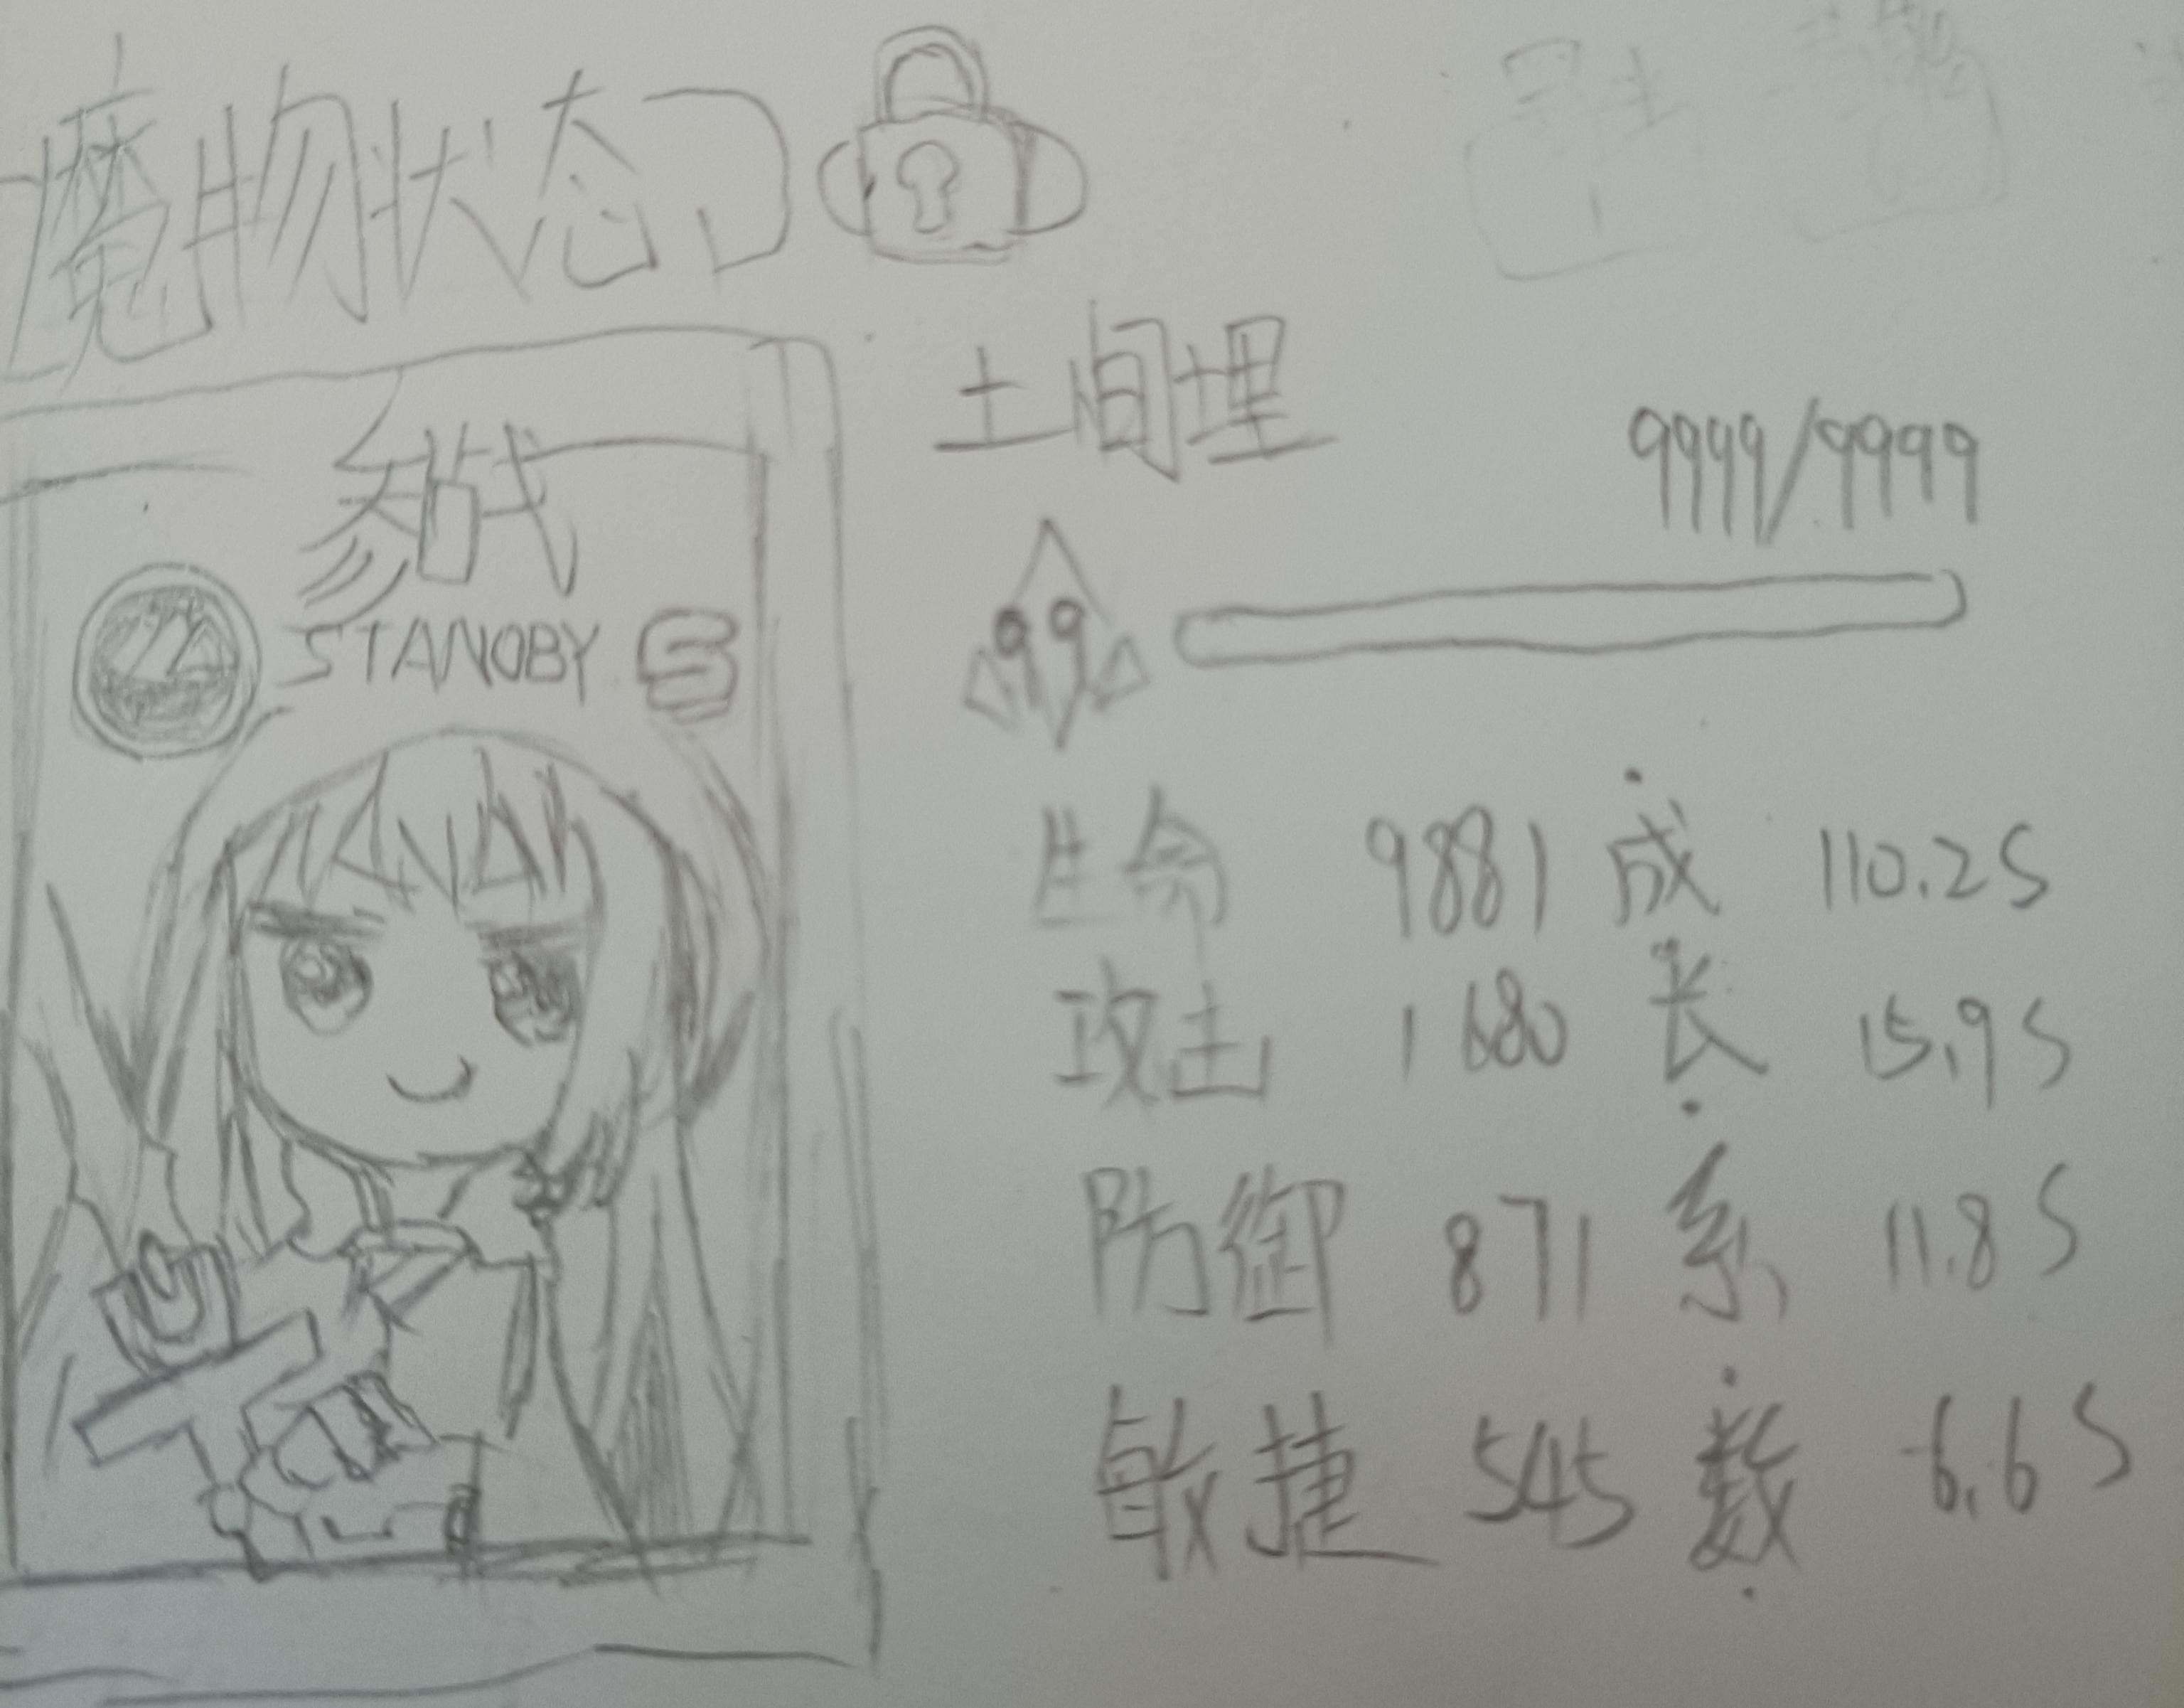 魔物状态
土间埋
参战
9999/9999
STANDBY S
99
生命 9881 成 110.2S
攻击 1680 长 15.9S
防御 871 系 11.8S
敏捷 545 数 6.6S